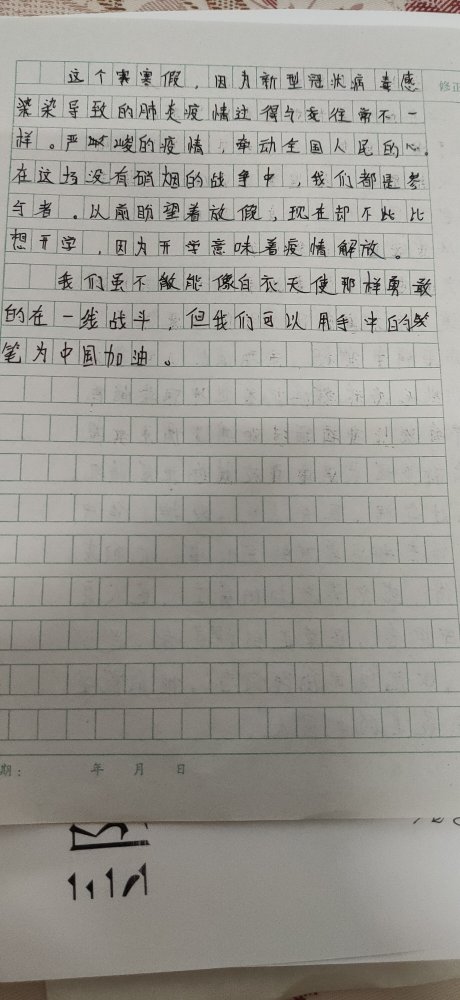 这个寒寒假，因为新型冠状病毒感
染染导致的肺炎疫情过得与往常不一
样。严峻的疫情，牵动全国人民的心。
在这场没有硝烟的战争中，我们都是参
与者。以前盼望着放假，现在却不此比
想开学，因为开学意味着疫情解放。
我们虽不敏能像白衣天使那样勇敢
的在一线战斗，但我们可以用手中的
笔为中国加油。
修正
期： 年 月 日